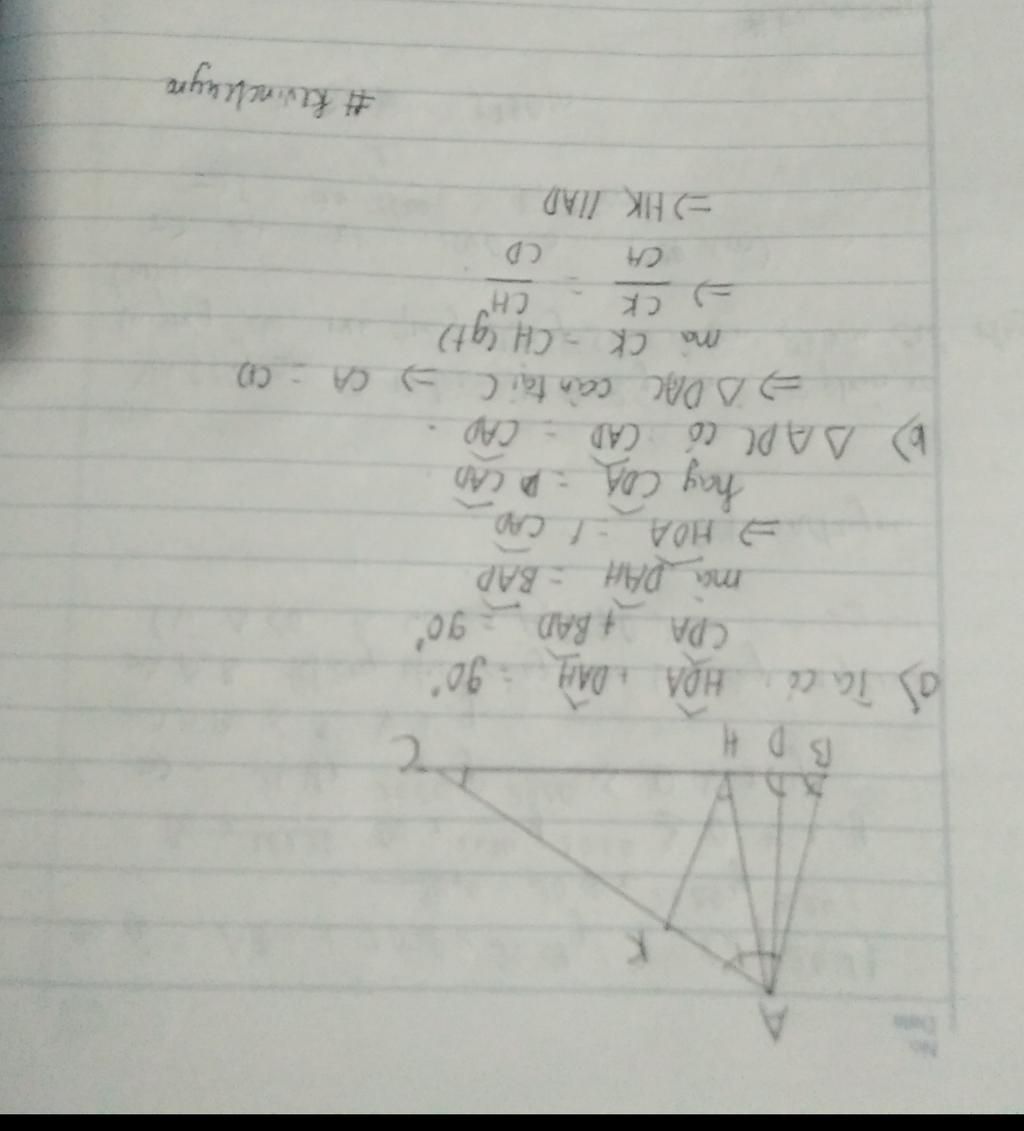 No.
Date
A
K
B D H C
a) Ta có: HDA + DAH = 90°
CDA + BAD = 90°
mà DAH = BAD
=> HDA = CAD
hay CDA = CAD
b) Δ ADC có CAD = CAD.
=> Δ DAC cân tại C => CA = CD
mà CK = CH (gt)
=> CK/CA = CH/CD
=> HK // AD